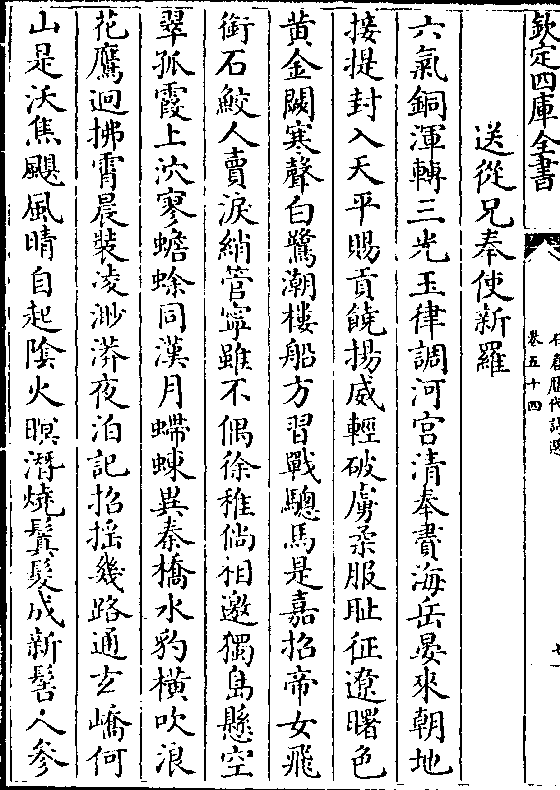 欽定四庫全書
卷五十四
送從兄奉使新羅
六氣銅渾轉三光玉律調河宫清奉贄海岳晏來朝地
接提封入天平賜貢饒揚威輕破虜柔服耻征遼曙色
黄金闕寒聲白鷺潮樓船方習戰驄馬是嘉招帝女飛
銜石鮫人賣淚綃管寧雖不偶徐稚倘相邀獨島懸空
翠孤霞上泬寥蟾蜍同漢月螮蝀異秦橋水豹横吹浪
花鷹迥拂霄晨裝凌渺漭夜泊記招摇幾路通𤣥嶠何
山是沃焦颶風晴自起隂火暝潛燒鬒髮成新髻人參